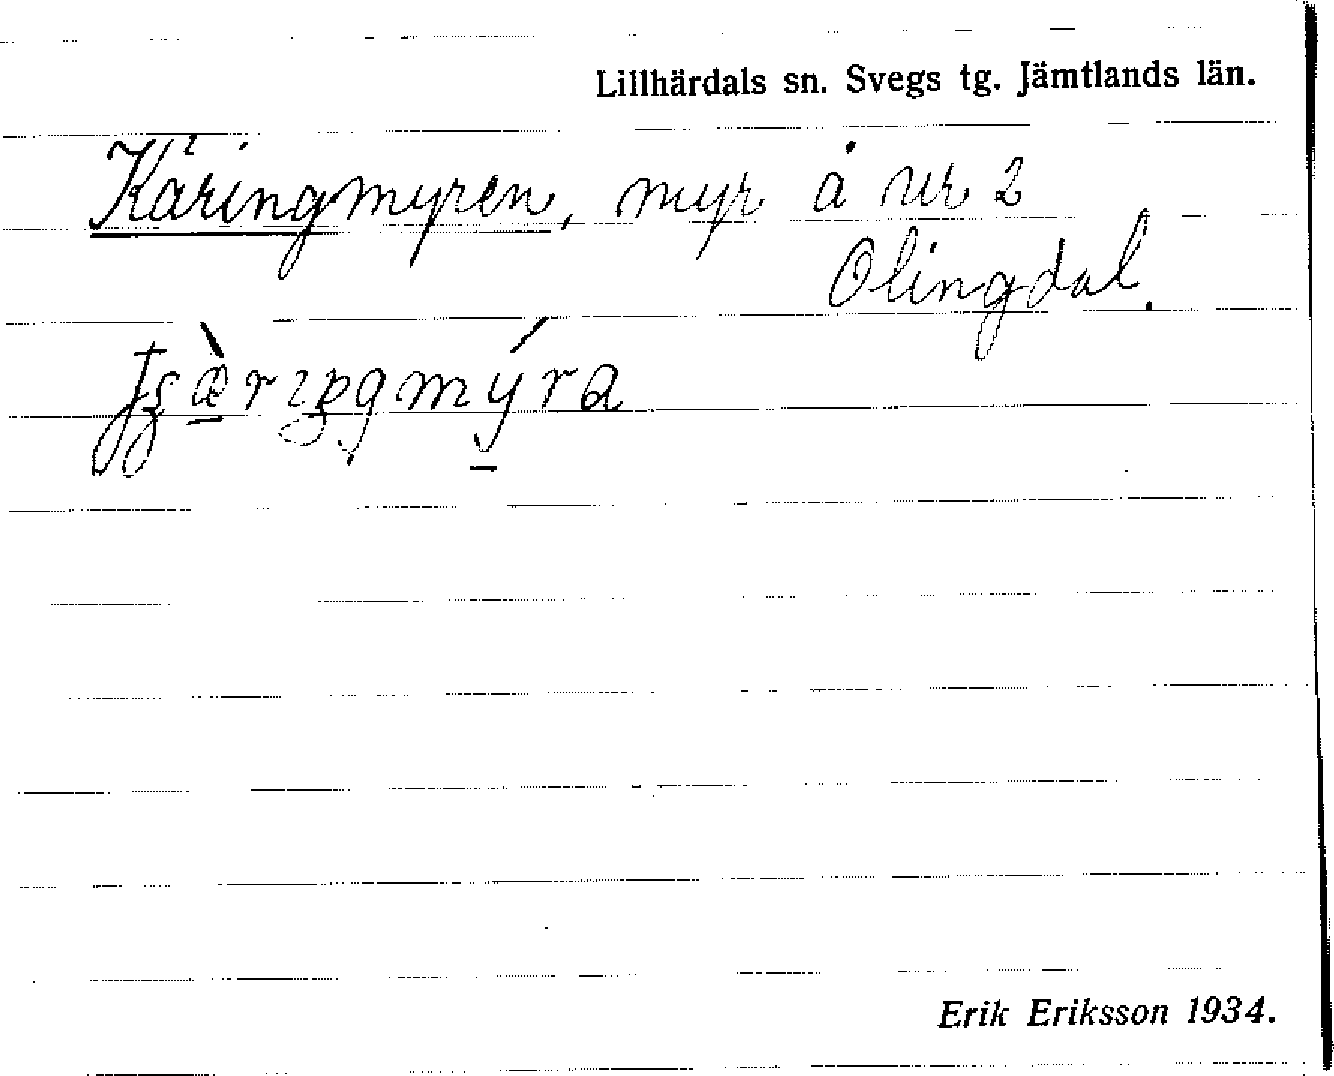 Lillhärdals sn. Svegs tg. Jämtlands län.
Käringmyren, myr å nr 2
Olingdal.
Erik Eriksson 1934.